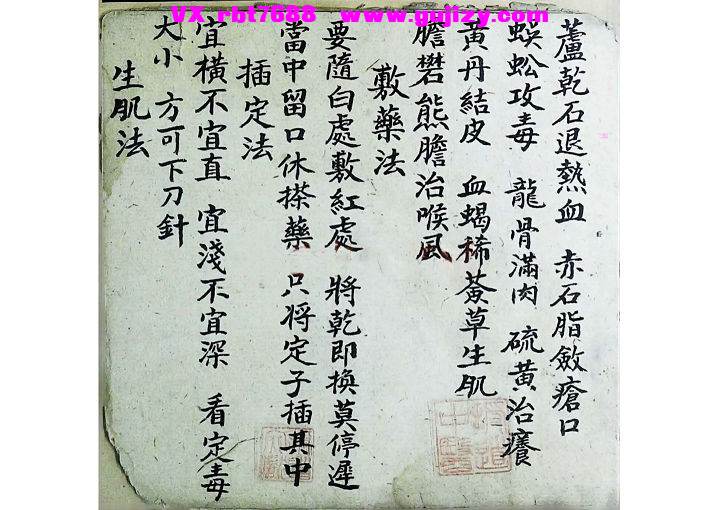 VX rbt7688 www.gujizy.com
蘆乾石退熱血 赤石脂斂瘡口
蜈蚣攻毒 龍骨滿肉 硫黃治癢
黃丹結皮 血蝎稀薟草生肌
膽礬熊膽治喉風
敷藥法
要隨白處敷紅處 將乾即換莫停遲
當中留口休搽藥 只將定子插其中
插定法
宜橫不宜直 宜淺不宜深 看定毒
大小 方可下刀針
生肌法